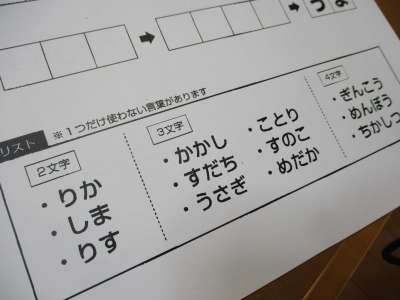 うま
リスト
※１つだけ使わない言葉があります
2文字
・りか
・しま
・りす
3文字
・かかし
・すだち
・うさぎ
・ことり
・すのこ
・めだか
4文字
・ぎんこう
・めんぼう
・ちかしつ